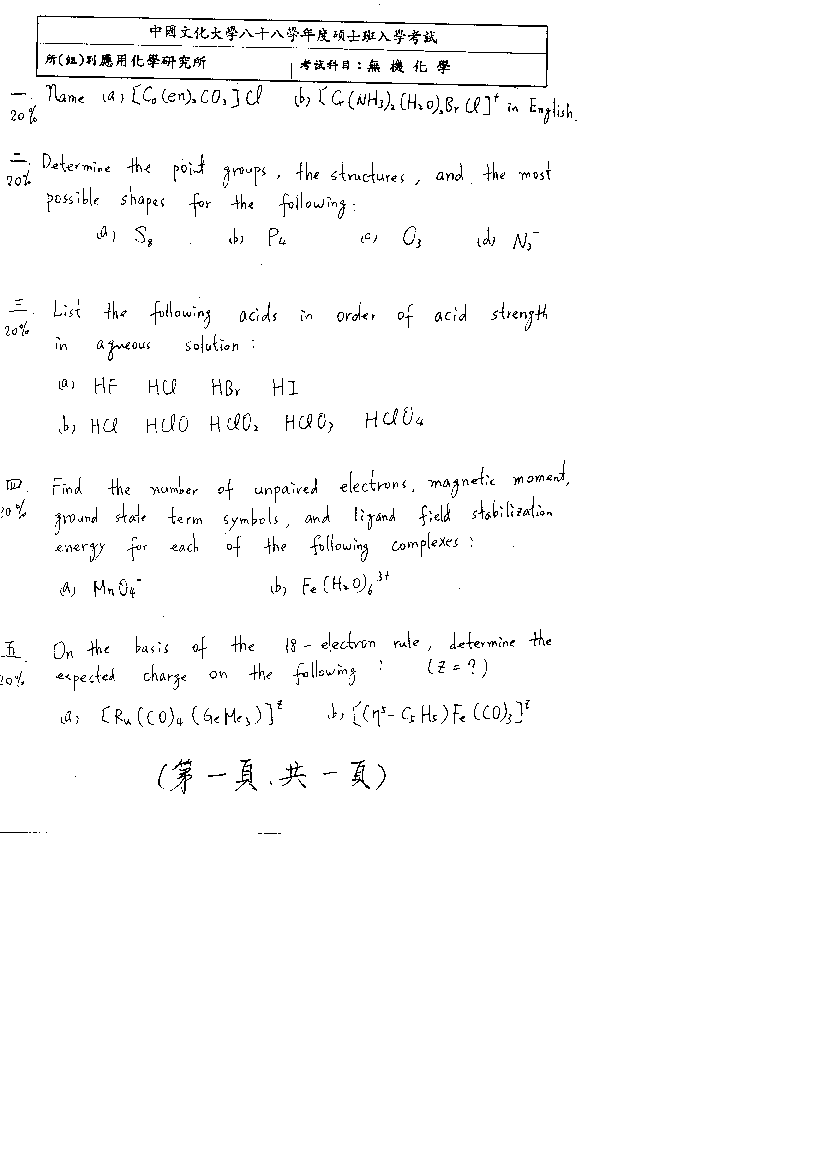 中國文化大學八十八學年度碩士班入學考試
所(組)別應用化學研究所 考試科目:無機化學
一. Name (a) [Co(en)₂CO₃]Cl (b) [Cr(NH₃)₂(H₂O)₂BrCl]⁺ in English.
20%
二. Determine the point groups, the structures, and the most
20% possible shapes for the following:
(a) S₈ (b) P₄ (c) O₃ (d) N₃⁻
三. List the following acids in order of acid strength
20% in aqueous solution:
(a) HF HCl HBr HI
(b) HCl HClO HClO₂ HClO₃ HClO₄
四. Find the number of unpaired electrons, magnetic moment,
20% ground state term symbols, and ligand field stabilization
energy for each of the following complexes:
(a) MnO₄⁻ (b) Fe(H₂O)₆³⁺
五. On the basis of the 18-electron rule, determine the
20% expected charge on the following: (z=?)
(a) [Ru(CO)₄(GeMe₃)]ᶻ (b) [(η⁵-C₅H₅)Fe(CO)₃]ᶻ
(第一頁、共一頁)